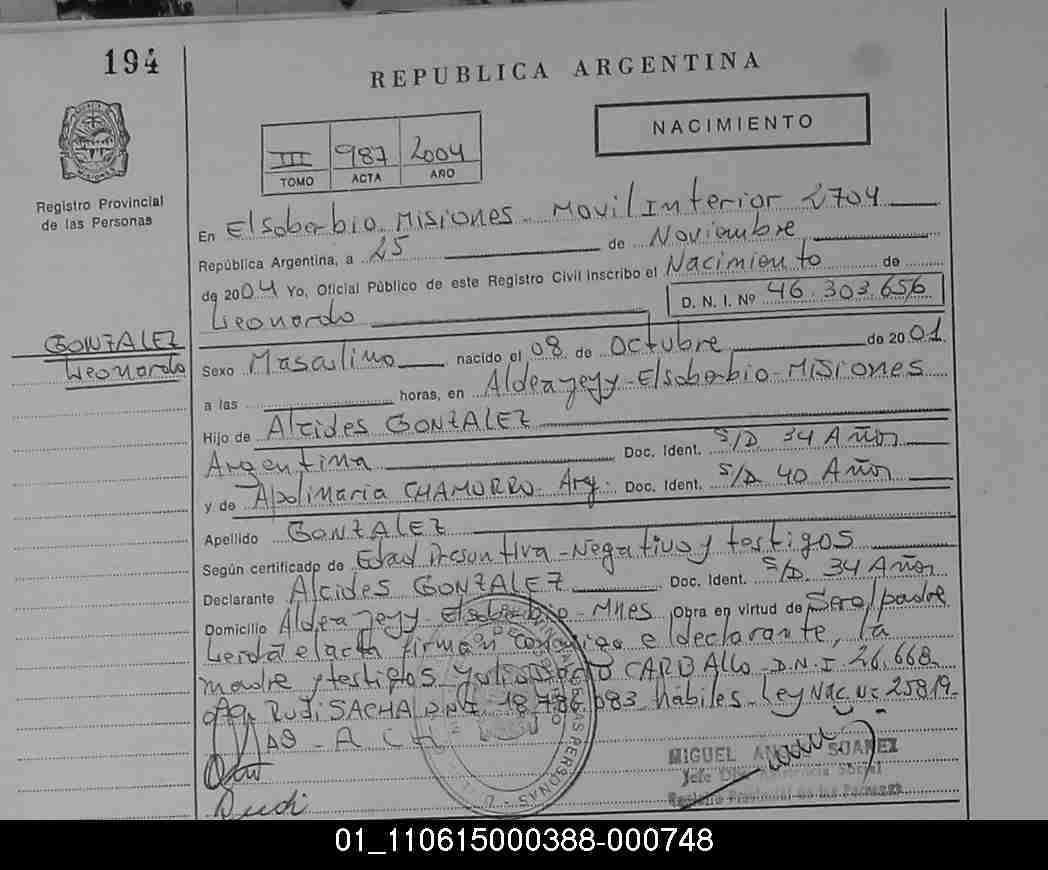 194
REPUBLICA ARGENTINA
NACIMIENTO
III 987 2004
TOMO ACTA AÑO
Registro Provincial
de las Personas
En Elsoberbio Misiones - Movil Interior 2704
República Argentina, a 25 de Noviembre
de 2004 Yo, Oficial Público de este Registro Civil inscribo el Nacimiento de
Leonardo
D. N. I. Nº 46.303.656
GONZALEZ
Leonardo
Sexo Masculino nacido el 08 de Octubre de 2001
a las horas, en Aldea yejy - Elsoberbio - Misiones
Hijo de Alcides GONZALEZ
Argentina Doc. Ident. S/D 34 Años
y de Apolinaria CHAMORRO Arg. Doc. Ident. S/D 40 Años
Apellido GONZALEZ
Según certificado de Edad Presuntiva - Negativo y testigos
Declarante Alcides GONZALEZ Doc. Ident. S/D. 34 Años
Domicilio Aldea yejy - Elsoberbio - Mnes Obra en virtud de Ser el padre
Leida el acta firman conmigo e declarante, la
madre y testigos CARBALLO D.N.I 26.668.
Rudi SACHA DNI 18.786.083 hábiles - Ley Nac. Nº 25819-
MIGUEL ANGEL SUAREZ
Registro Provincial de las Personas
Rudi
01_110615000388-000748